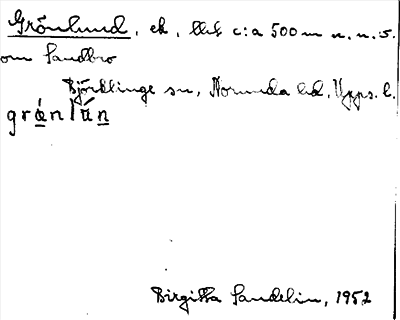 Grönlund, ek, c:a 500 m n.n.v.
om Sandbro
Björklinge sn, Norunda hd, Upps. l.
grǿnlún
Birgitta Sandelin, 1952